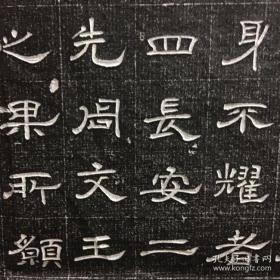 身不耀老
四長安二
先周文王
之果所願
孔夫子旧书网